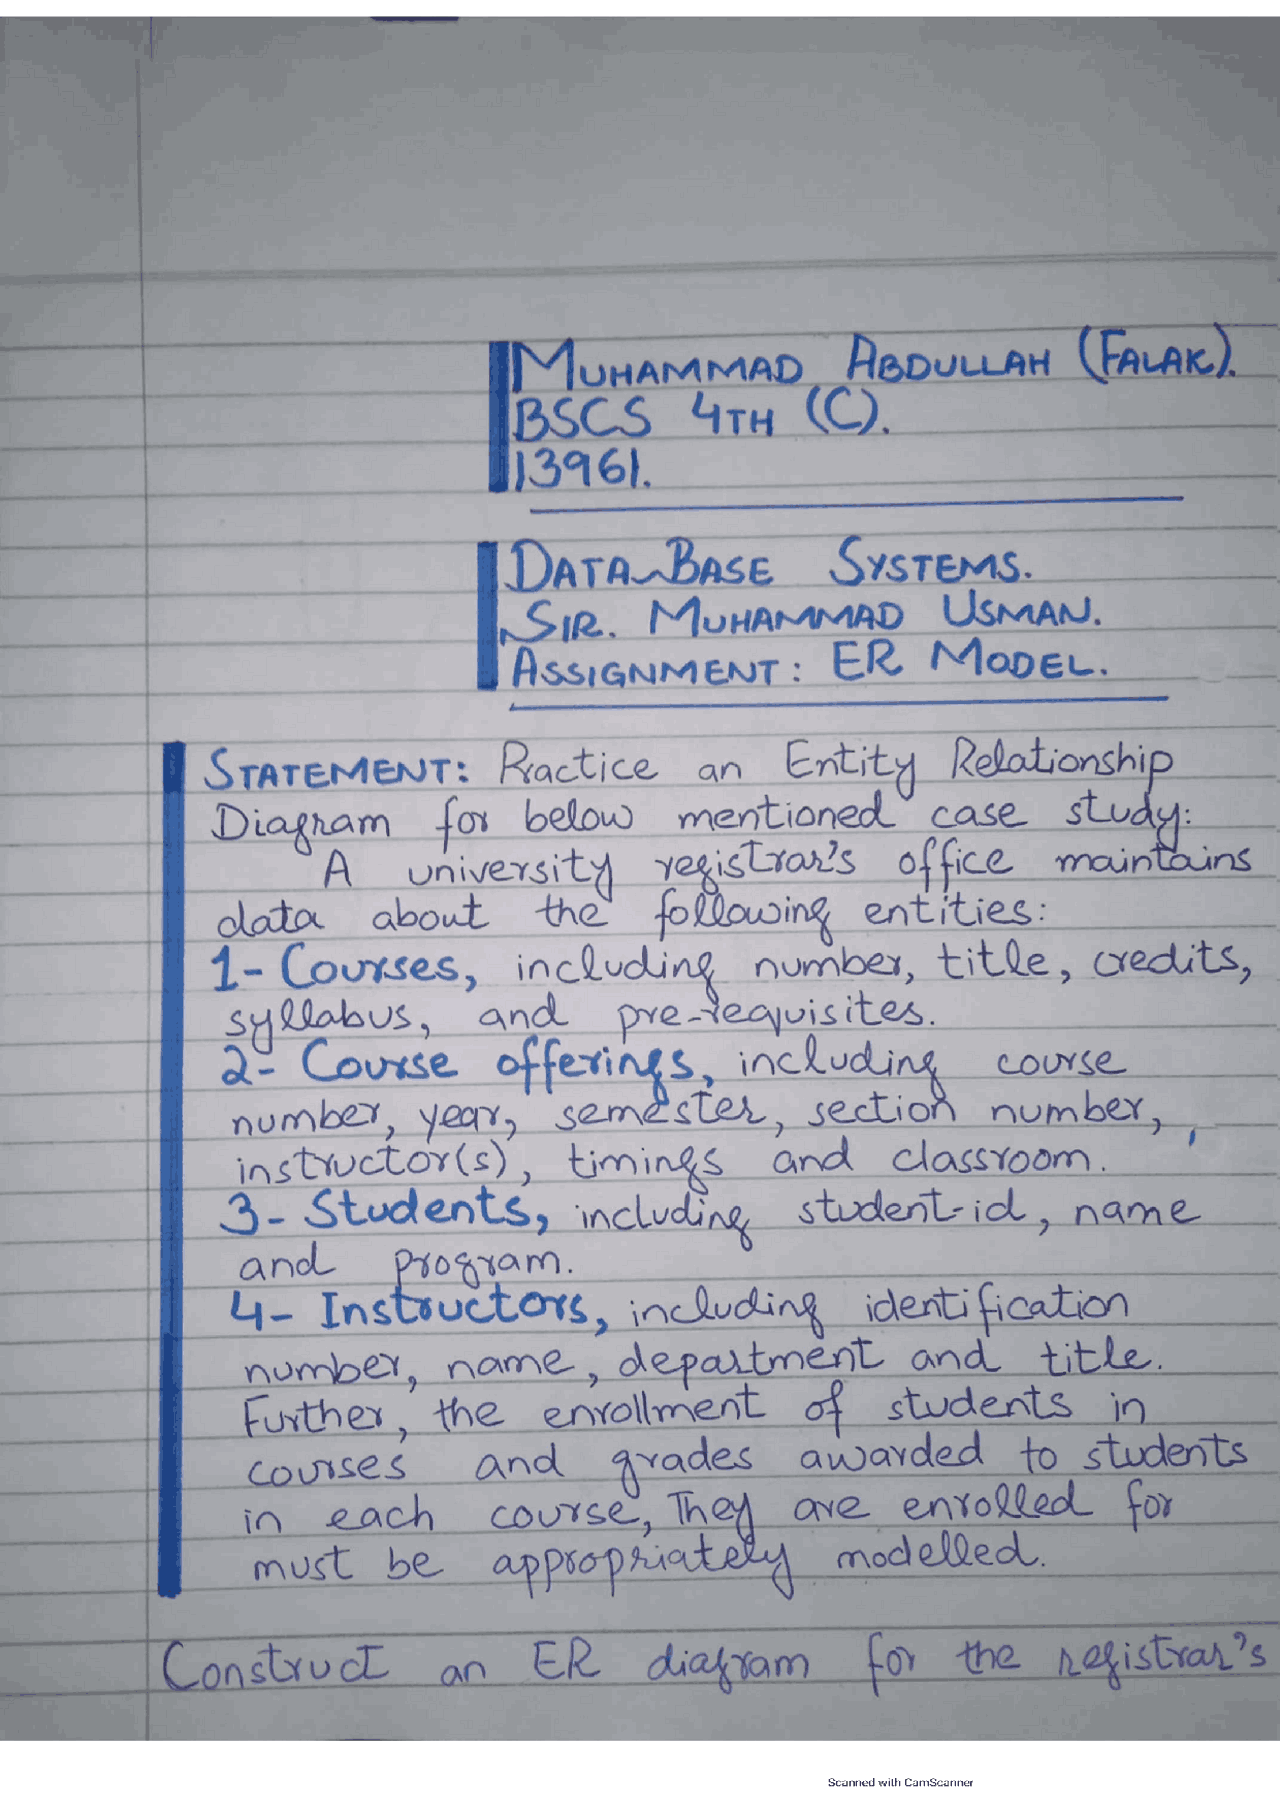 MUHAMMAD ABDULLAH (FALAK).
BSCS 4TH (C).
13961.
DATA BASE SYSTEMS.
SIR. MUHAMMAD USMAN.
ASSIGNMENT: ER MODEL.
STATEMENT: Practice an Entity Relationship
Diagram for below mentioned case study:
A university registrar's office maintains
data about the following entities:
1- Courses, including number, title, credits,
syllabus, and pre-requisites.
2- Course offerings, including course
number, year, semester, section number,
instructor(s), timings and classroom.
3- Students, including student-id, name
and program.
4- Instructors, including identification
number, name, department and title.
Further, the enrollment of students in
courses and grades awarded to students
in each course, They are enrolled for
must be appropriately modelled.
Construct an ER diagram for the registrar's
Scanned with CamScanner